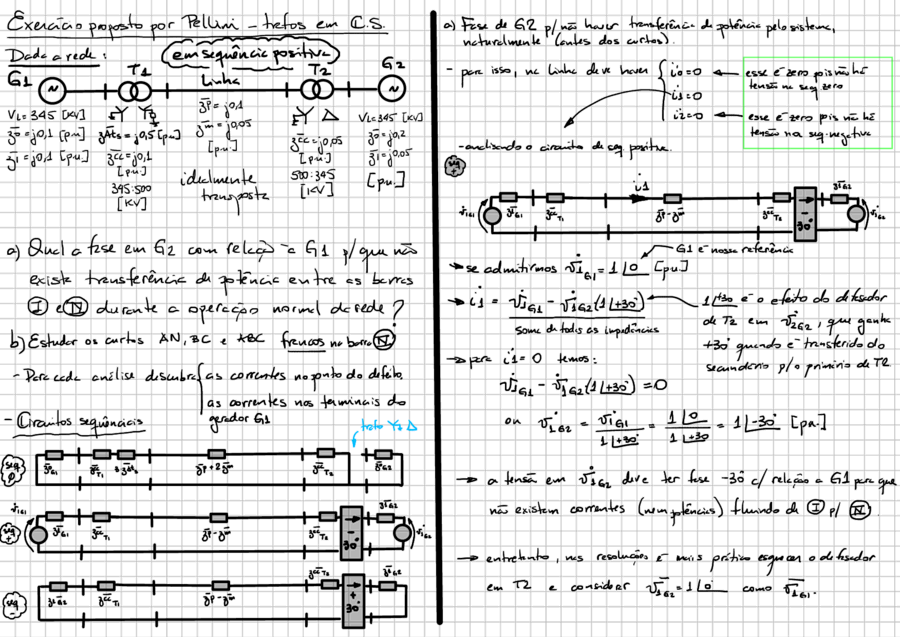 Exercício proposto por Pellini - trafos em C.S.
Dada a rede: (em sequência positiva)
G1 T1 Linha T2 G2
VL=345 [KV]
z̄0=j0,1 [p.u.]
z̄1=j0,1 [p.u.]
z̄Ats=j0,5 [p.u.]
z̄cc=j0,1
[p.u.]
345:500
[KV]
z̄p=j0,1
z̄m=j0,05
[p.u.]
idealmente
transposta
z̄cc=j0,05
[p.u.]
500:345
[KV]
VL=345 [KV]
z̄0=j0,2
z̄1=j0,05
[p.u.]
a) Qual a fase em G2 com relação a G1 p/ que não
exista transferência de potência entre as barras
I e N durante a operação normal da rede?
b) Estudar os curtos AN, BC e ABC francos na barra N
- Para cada análise descubra as correntes no ponto do defeito,
as correntes nos terminais do
gerador G1
- Circuitos sequênciais
trafo Y Δ
seq 0
z̄0G1 z̄ccT1 3z̄At z̄p+2z̄m z̄ccT2 z̄0G2
seq +
v̇1G1 z̄1G1 z̄ccT1 z̄p-z̄m z̄ccT2 → -30° z̄1G2 v̇1G2
seq -
z̄1G2 z̄ccT1 z̄p-z̄m z̄ccT2 → +30° z̄1G2
a) Fase de G2 p/ não haver transferência de potência pelo sistema,
naturalmente (antes dos curtos).
- para isso, na linha deve haver
i̇0=0 ← esse é zero pois não há
tensão na seq zero
i̇1=0
i̇2=0 ← esse é zero pois não há
tensão na seq. negativa
- analisando o circuito de seq positiva.
seq +
v̇1G1 z̄1G1 z̄ccT1 i̇1 z̄p-z̄m z̄ccT2 → -30° z̄1G2 v̇1G2
G1 é nossa referência
→ se admitirmos v̇1G1 = 1∠0 [p.u.]
→ i̇1 = v̇1G1 - v̇1G2(1∠+30°)
soma de todas as impedâncias
1∠+30 é o efeito do defasador
de T2 em v̇1G2, que ganha
+30° quando é transferido do
secundário p/ o primário de T2
→ para i̇1=0 temos:
v̇1G1 - v̇1G2(1∠+30°) = 0
ou v̇1G2 = v̇1G1 / 1∠+30° = 1∠0 / 1∠+30 = 1∠-30° [p.u.]
→ a tensão em v̇1G2 deve ter fase -30 c/ relação a G1 para que
não existam correntes (nem potências) fluindo de I p/ N
→ entretanto, nas resoluções é mais prático esquecer o defasador
em T2 e considerar v̇1G2 = 1∠0 como v̇1G1.